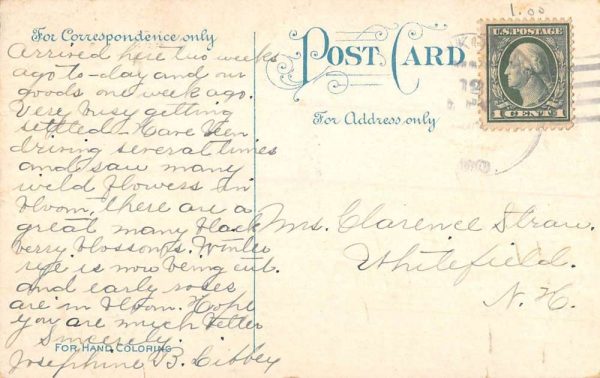 For Correspondence only
Arrived here two weeks
ago to-day and our
goods one week ago.
Very busy getting
settled. Have been
driving several times
and saw many
wild flowers in
bloom, there are a
great many black
berry blossoms. Winter
rye is now being cut.
and early roses
are in bloom. Hope
you are much better
Sincerely.
Josephine B. Libbey
FOR HAND COLORING
POST CARD
For Address only
1.00
U.S. POSTAGE
1 CENT 1
Mrs. Clarence Straw.
Whitefield.
N. H.